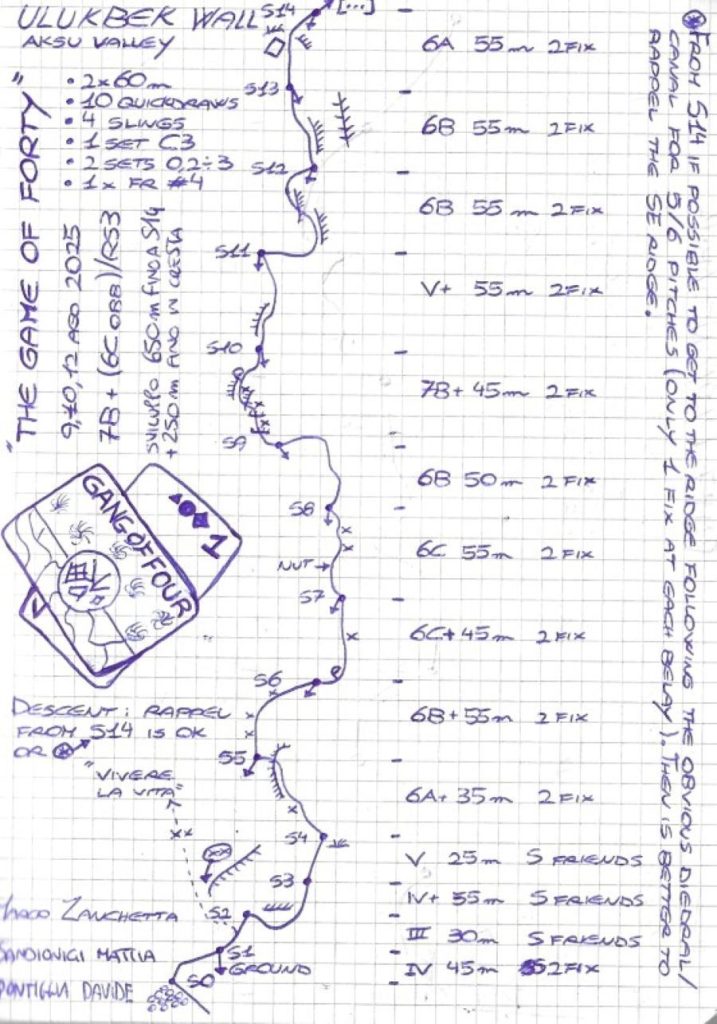 ULUKBEK WALL
AKSU VALLEY
"THE GAME OF FORTY"
• 2x60m
• 10 QUICKDRAWS
• 4 SLINGS
• 1 SET C3
• 2 SETS 0,2÷3
• 1x FR #4
9,10,12 AGO 2025
7B+ (6C OBB)/RS3
SVILUPPO 650m FINO A S14
+250m FINO IN CRESTA
GANG OF FOUR
1
DESCENT: RAPPEL
FROM S14 IS OK
OR ⊗
"VIVERE
LA VITA"
ZANCHETTA
SANDIONIGI MATTIA
PONTIGGIA DAVIDE
S14 [...]
S13
S12
S11
S10
S9
S8
NUT
S7
S6
S5
S4
S3
S2
S1
GROUND
S0
6A 55m 2FIX
6B 55m 2FIX
6B 55m 2FIX
V+ 55m 2FIX
7B+ 45m 2FIX
6B 50m 2FIX
6C 55m 2FIX
6C+ 45m 2FIX
6B+ 55m 2FIX
6A+ 35m 2FIX
V 25m S FRIENDS
IV+ 55m S FRIENDS
III 30m S FRIENDS
IV 45m S 2FIX
⊗ FROM S14 IF POSSIBLE TO GET TO THE RIDGE FOLLOWING THE OBVIOUS DIEDRAL/
CANAL FOR 5/6 PITCHES (ONLY 1 FIX AT EACH BELAY). THEN IS BETTER TO
RAPPEL THE SE RIDGE.